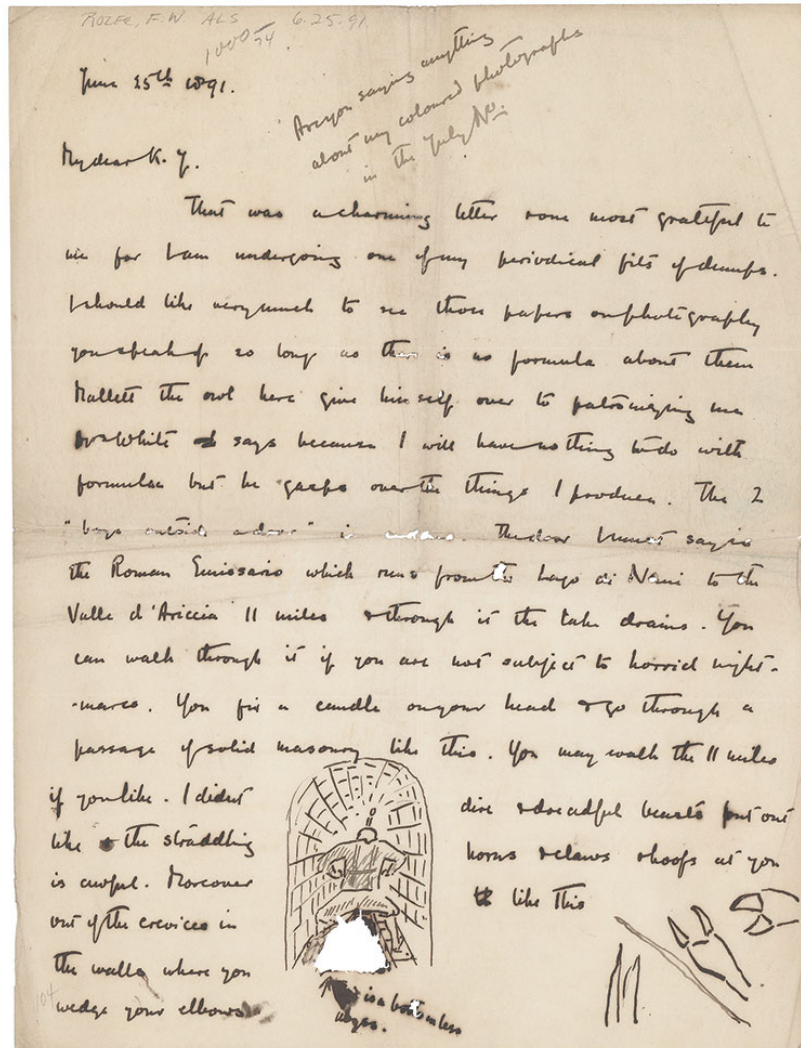 ROLFE, F.W. ALS 6.25.91
1000
June 25th 1891.
Are you saying anything
about my coloured photographs
in the July No:
My dear K. Y.
That was a charming letter & one most grateful to
me for I am undergoing one of my periodical fits of dumps.
I should like very much to see those papers on photography
you speak of so long as there is no formula about them
Mallett the owl here give himself over to patronizing me
& White says because I will have nothing to do with
formulae but he gasps over the things I produce. The 2
"boys outside a door" is The door I must say is
the Roman Emissario which runs from the Lago di Nemi to the
Valle d'Ariccia 11 miles & through it the lake drains. You
can walk through it if you are not subject to horrid night-
-mares. You fix a candle on your head & go through a
passage of solid masonry like this. You may walk the 11 miles
if you like. I didnt
like the straddling
is awful. Moreover
out of the crevices in
the walls where you
wedge your elbows
dire & dreadful beasts put out
horns & claws & hoofs at you
like this
is a bottomless
abyss.
104